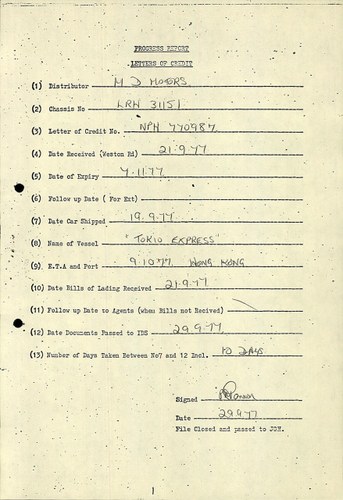 PROGRESS REPORT
LETTERS OF CREDIT
(1) Distributor M D MOTORS.
(2) Chassis No LRH 31151
(3) Letter of Credit No. NPH 770987.
(4) Date Received (Weston Rd) 21.9.77
(5) Date of Expiry 7.11.77
(6) Follow up Date ( For Ext)
(7) Date Car Shipped 19.9.77
(8) Name of Vessel "TOKIO EXPRESS"
(9) E.T.A and Port 9.10.77. HONG KONG
(10) Date Bills of Lading Received 21.9.77
(11) Follow up Date to Agents (when Bills not Recived)
(12) Date Documents Passed to IBS 29.9.77.
(13) Number of Days Taken Between No7 and 12 Incl. 10 DAYS
Signed
Date 29.9.77
File Closed and passed to JOH.